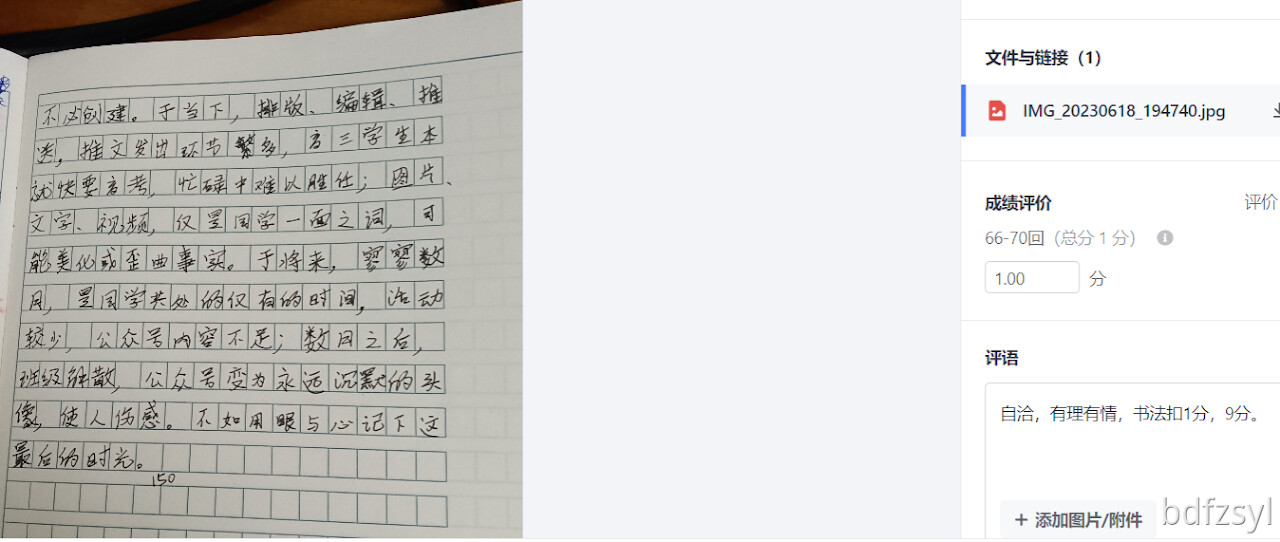 不必创建。于当下，排版、编辑、推
送，推文发出环节繁多，高三学生本
就快要高考，忙碌中难以胜任；图片、
文字、视频，仅是同学一面之词，可
能美化或歪曲事实。于将来，寥寥数
月，是同学共处的仅有的时间，活动
较少，公众号内容不足；数月之后，
班级解散，公众号变为永远沉默的头
像，使人伤感。不如用眼与心记下这
最后的时光。
150
文件与链接（1）
IMG_20230618_194740.jpg
成绩评价
评价
66-70回（总分 1 分）
1.00 分
评语
自洽，有理有情，书法扣1分，9分。
+ 添加图片/附件
bdfzsyl